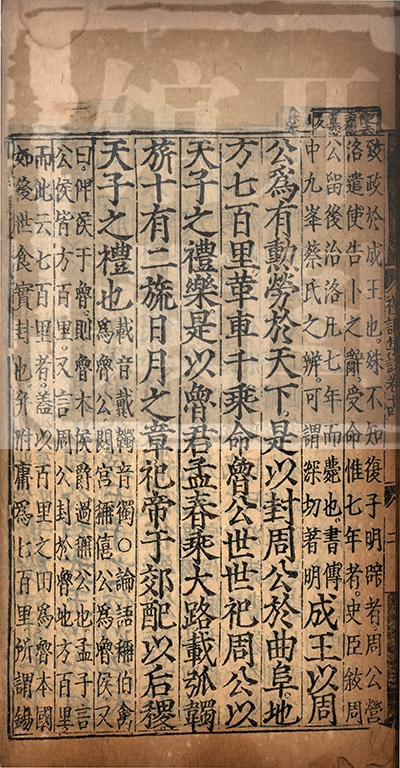 禮記集說卷十四
二
致政於成王也殊不知復子明辟者周公營
洛遣使告卜之辭受命惟七年者史臣敘周
公留後治洛凡七年而薨也書傳
中九峯蔡氏之辨可謂深切著明
成王以周
公為有勳勞於天下是以封周公於曲阜地
方七百里革車千乘命魯公世世祀周公以
天子之禮樂是以魯君孟春乘大路載弧韣
旂十有二旒日月之章祀帝于郊配以后稷
天子之禮也
載音戴韣音獨○論語稱伯禽
為魯公閟宮稱僖公為魯侯又
曰俾侯于魯則魯本侯爵過稱公也孟子言
公侯皆方百里又言周公封於魯地方百里
而此云七百里者蓋以百里之田為魯本國
如後世食實封也并附庸為七百里所謂錫